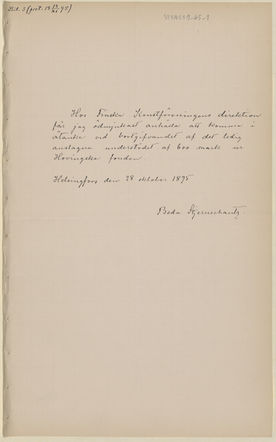 Hos Finska Konstföreningens direktion
får jag ödmjukast anhålla att komma i
åtanke vid bortgifvandet af det ledig
anslagna understödet af 600 mark ur
Hovingska fonden.
Helsingfors den 28 oktober 1895
Beda Stjernschantz